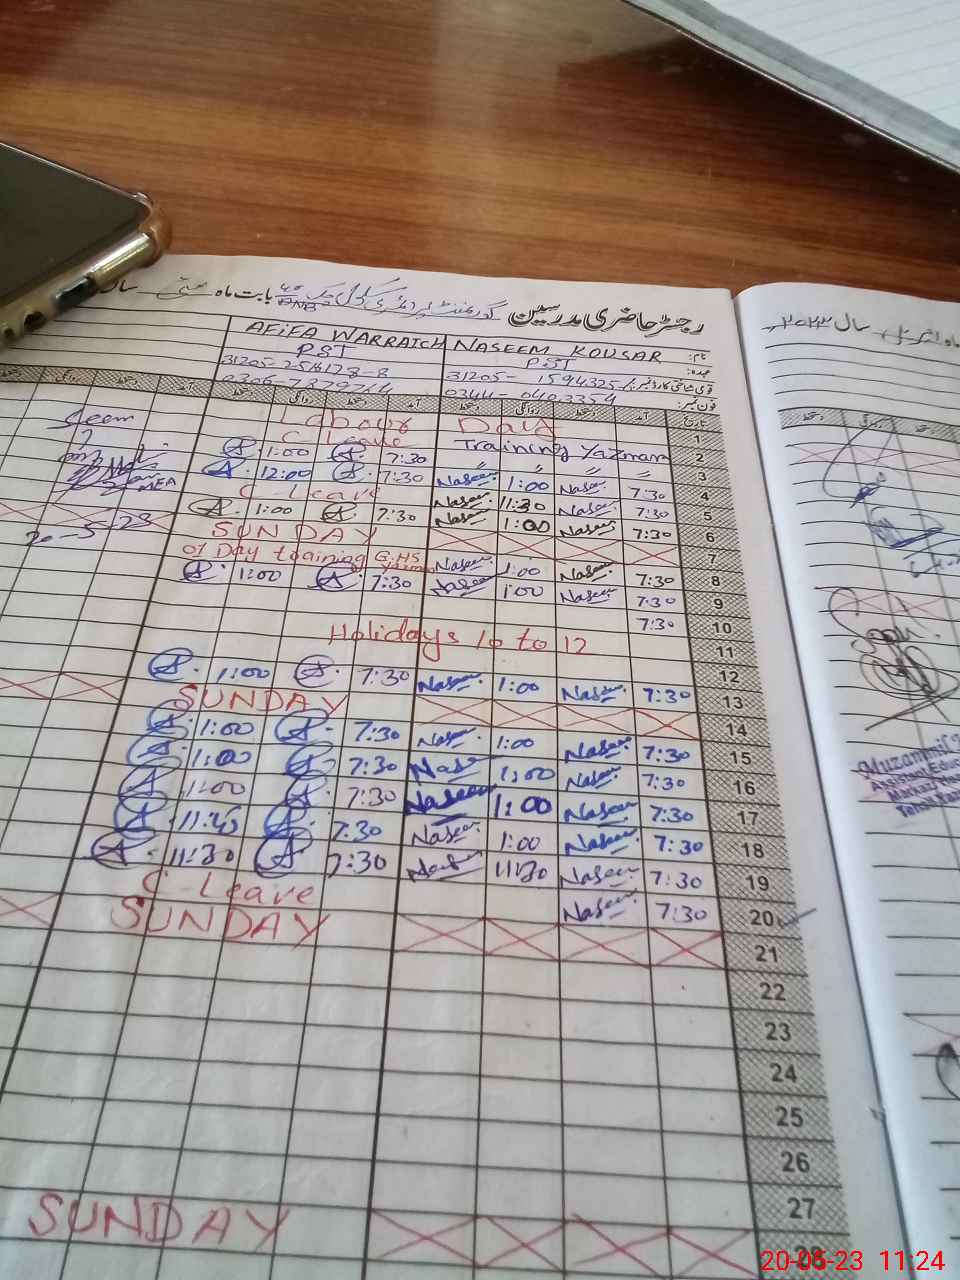 رجسٹر حاضری مدرسین گورنمنٹ پرائمری سکول چک بابت ماہ مئی سال
نام: NASEEM KOUSAR AFIFA WARRAICH
عہدہ: PST PST
قومی شناختی کارڈ نمبر: 31205-1594325
فون نمبر: 0344-0403354
تاریخ آمد دستخط روانگی دستخط آمد دستخط روانگی دستخط
Labour Day 1
C Leave Training Yazman 2
1:00 7:30 3
12:00 7:30 Naseem 1:00 Naseem 7:30 4
C Leave Naseem 11:30 Naseem 7:30 5
1:00 7:30 Naseem 1:00 Naseem 7:30 6
SUNDAY 7
01 Day training G.HS Yazman Naseem 1:00 Naseem 7:30 8
1:00 7:30 Naseem 1:00 Naseem 7:30 9
7:30 10
Holidays 10 to 12 11
12
1:00 7:30 Naseem 1:00 Naseem 7:30 13
SUNDAY 14
1:00 7:30 Naseem 1:00 Naseem 7:30 15
1:00 7:30 Naseem 1:00 Naseem 7:30 16
1:00 7:30 Naseem 1:00 Naseem 7:30 17
11:45 7:30 Naseem 1:00 Naseem 7:30 18
11:30 7:30 Naseem 11:30 Naseem 7:30 19
C Leave Naseem 7:30 20
SUNDAY 21
22
23
24
25
26
27
SUNDAY 28
Seen
MEA
20-5-23
سال ۲۰۲۳
دستخط روانگی
Muzammil
Assistant Educ
Markaz
Tehsil
20-05-23 11:24